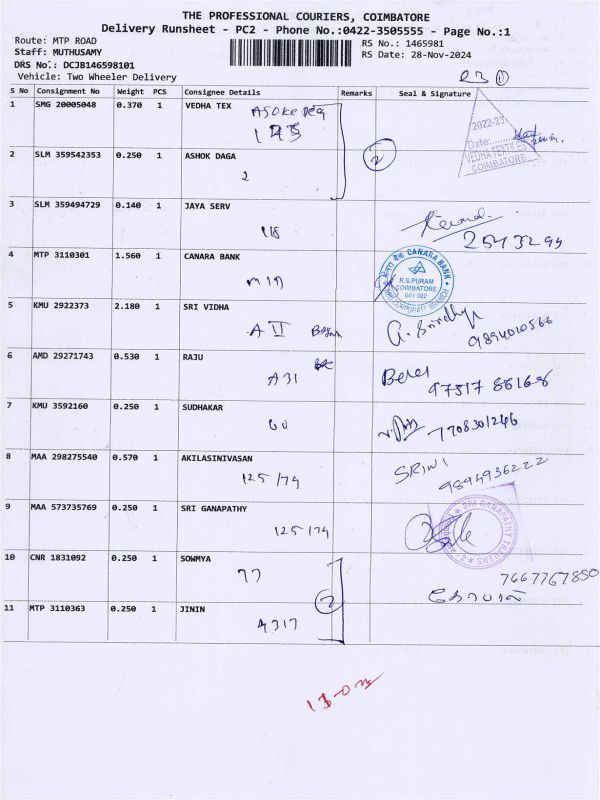 THE PROFESSIONAL COURIERS, COIMBATORE
Delivery Runsheet - PC2 - Phone No.:0422-3505555 - Page No.:1
Route: MTP ROAD
RS No.: 1465981
Staff: MUTHUSAMY
RS Date: 28-Nov-2024
DRS No.: DCJB146598101
Vehicle: Two Wheeler Delivery
S No Consignment No Weight PCS Consignee Details Remarks Seal & Signature
1 SMG 20005048 0.370 1 VEDHA TEX
2022-23
Date:
VEDHA TEXTILES
COIMBATORE
2 SLM 359542353 0.250 1 ASHOK DAGA
2
2
3 SLM 359494729 0.140 1 JAYA SERV
4 MTP 3110301 1.560 1 CANARA BANK
CANARA BANK
R.S.PURAM
COIMBATORE
641 002
5 KMU 2922373 2.180 1 SRI VIDHA
A II
9894010566
6 AMD 29271743 0.530 1 RAJU
A31
7 KMU 3592160 0.250 1 SUDHAKAR
7708301246
8 MAA 298275540 0.570 1 AKILASINIVASAN
125/74
SRINI
9894936222
9 MAA 573735769 0.250 1 SRI GANAPATHY
125/74
SRI GANAPATHY TRADERS
10 CNR 1831092 0.250 1 SOWMYA
77
7667767850
2
11 MTP 3110363 0.250 1 JININ
4317